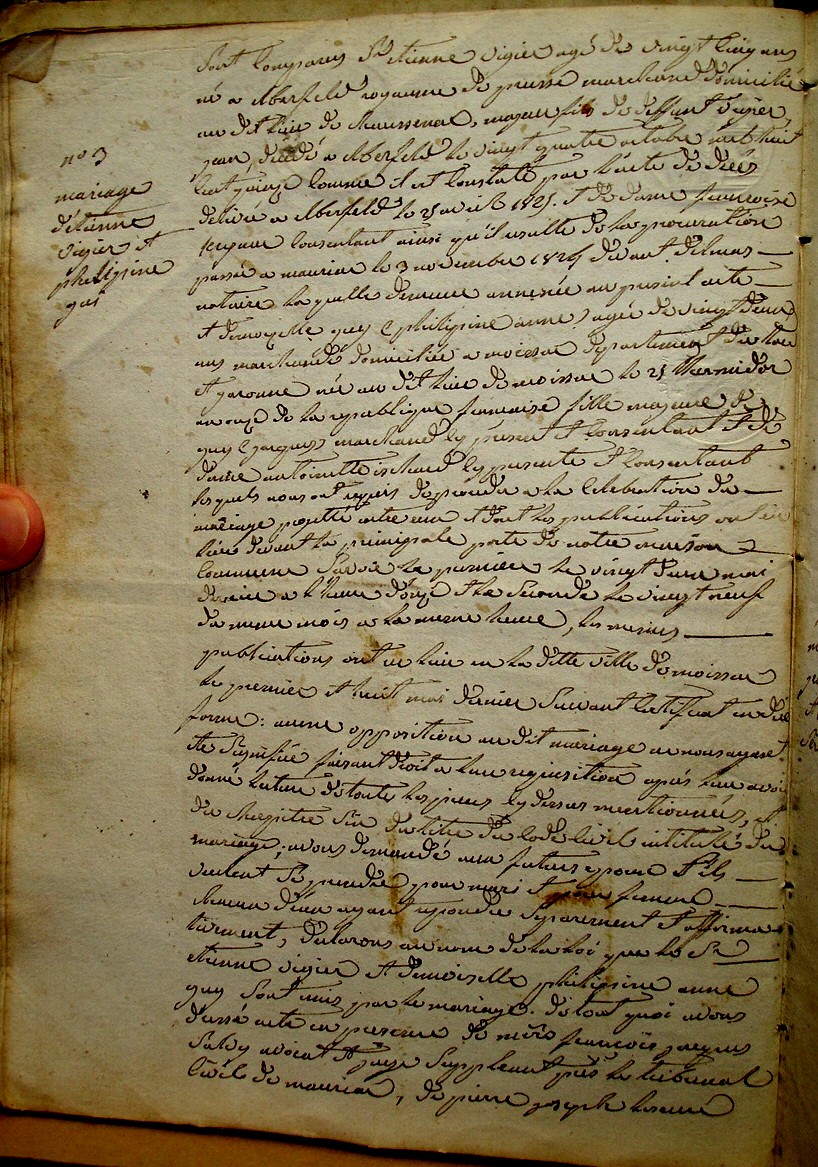 n° 3
mariage
d'étienne
vigier et
philipine
gui
Sont comparus Sr etienne vigier agé de vingt cinq ans
né a Elberfeld royaume de prusse marchand domicilié
au dit lieu de Maussenac, majeur fils de deffunt vigier
jean, décédé a Elberfeld le vingt quatre octobre mil huit
cent quinze comme il est constaté par l'acte de décès
délivré a Elberfeld le 25 avril 1825. et de dame francoise
consentant ainsi qu'il resulte de la procuration
passée a mauriac le 3 novembre 1824 devant delmas
notaire laquelle demeure annexée au present acte
et demoiselle guy (philipine anne) agée de vingt deux
ans marchande domiciliée a moissac departement de tarn
et garonne née au dit lieu de moissac le 25 thermidor
an onze de la republique francaise fille majeure de
guy (jacques) marchand cy present et consentant et de
dame antoinette cy presente et consentant
lesquels nous ont requis de proceder a la celebration du
mariage projetté entre eux et dont les publications ont été
faites devant la principale porte de notre maison
commune Savoir la premiere le vingt deux mai
dernier a l'heure d'onze et la seconde le vingt neuf
du meme mois a la meme heure, les memes
publications ont eu lieu en la ditte ville de moissac
le premier et huit mai dernier Suivant certificat en düe
forme: aucune opposition au dit mariage ne nous ayant
été Signifiée faisant droit a leur requisition après leur avoir
donné lecture de toutes les pieces cy dessus mentionnées, et
du chapitre Six du titre du code civil intitulé du
mariage; avons demandé aux futurs epoux S'ils
veulent Se prendre pour mari et pour femme
chacun d'eux ayant repondu Separement et affirma-
tivement, déclarons au nom de la loi que le Sr
etienne vigier et demoiselle philipine anne
guy Sont unis par le mariage. de tout quoi avons
dressé acte en presence de francois jacques
avocat et juge Suppleant près le tribunal
Civil de mauriac, de pierre joseph